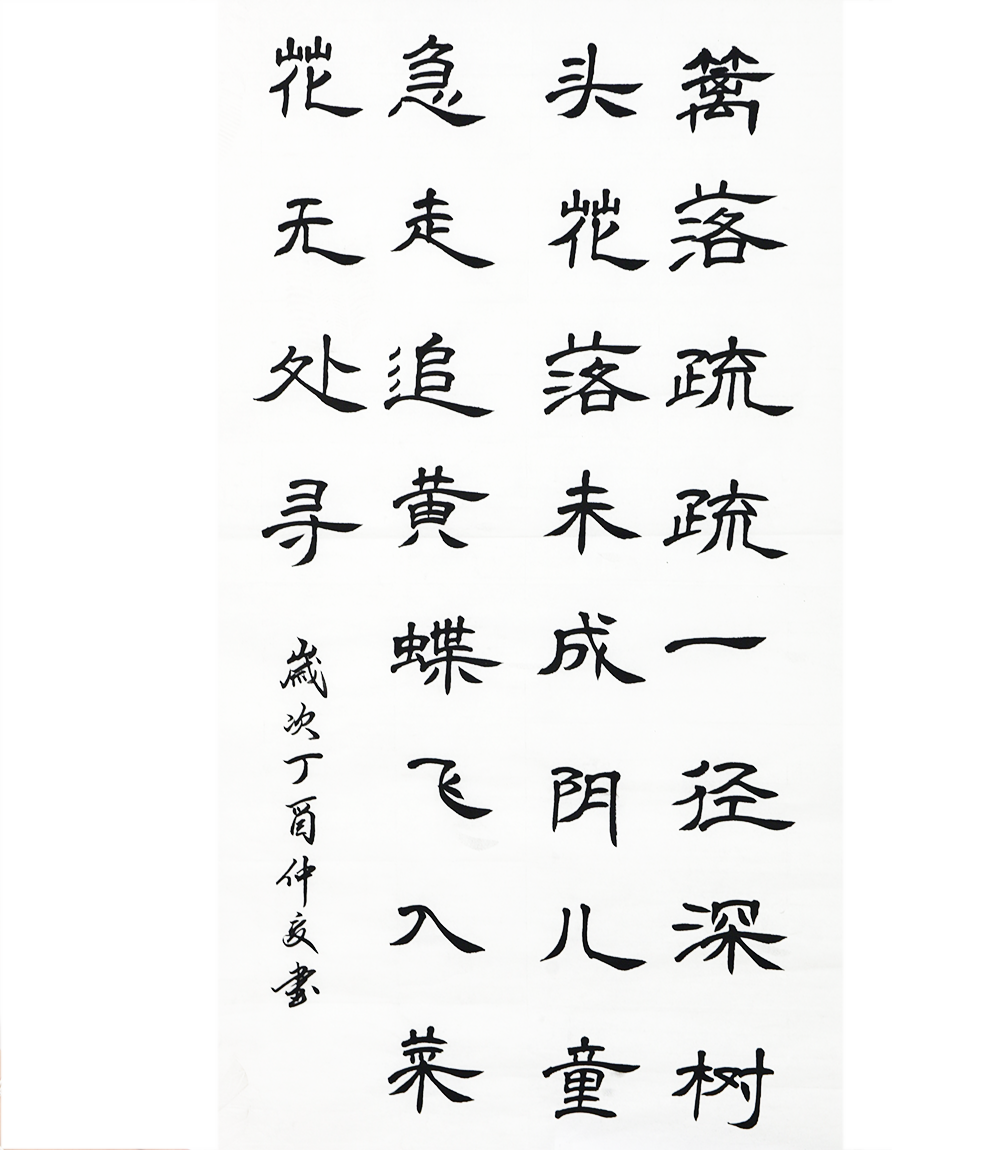 篱落疏疏一径深树
头花落未成阴儿童
急走追黄蝶飞入菜
花无处寻
歲次丁酉仲夏書